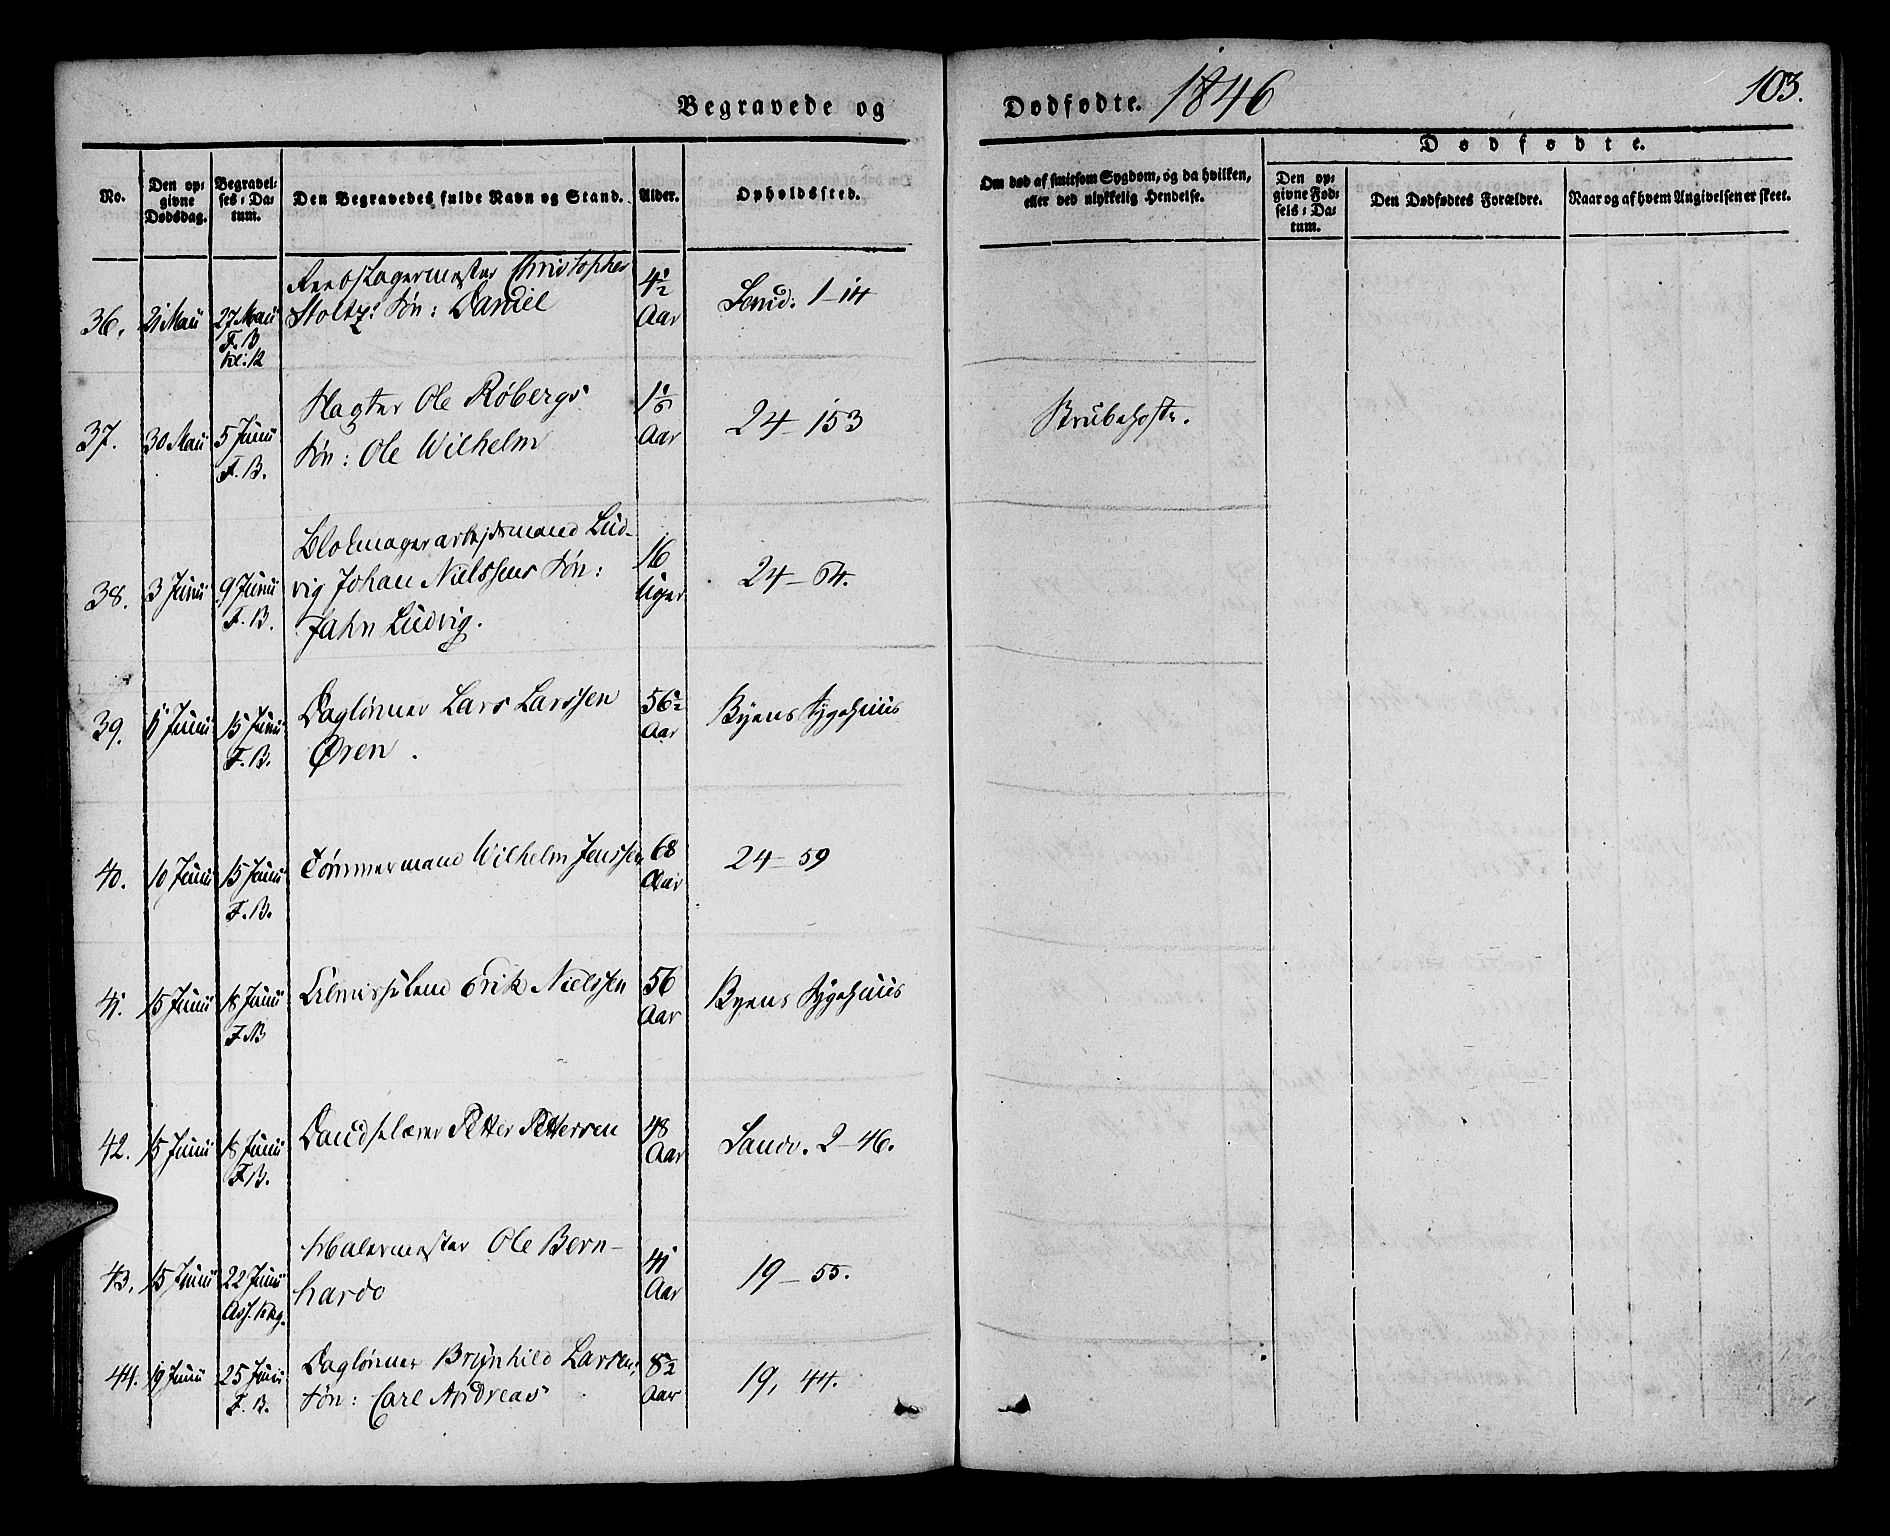 Begravede og Dødfødte. 1846
103.
No.
Den op-
givne
Dødsdag.
Begravel-
ses-Da-
tum.
Den Begravedes fulde Navn og Stand.
Alder.
Opholdssted.
Om død af smitsom Sygdom, og da hvilken,
eller ved ulykkelig Hendelse.
Dødfødte.
Den op-
givne Fød-
sels-Da-
tum.
Den Dødfødtes Forældre.
Naar og af hvem Angivelsen er skeet.
36. 21 Maii 27 Maii
F. B
Kl: 12
Reebslagermester Christopher
Stoltz's Søn: Daniel
4½
Aar
Sand. 1-14
37. 30 Maii 5 Junii
F. B.
Slagter Ole Røbergs
Søn: Ole Wilhelm
Aar
24-153
Strubehoste.
38. 3 Junii 9 Junii
F. B.
Blokmagerarbejdsmand Lud-
vig Johan Nielssens Søn:
Jahn Ludvig.
16
Uger
24-64.
39. Junii 15 Junii
F. B.
Daglønner Lars Larssen
Øren.
56½
Aar
Byens Sygehuus
40. 10 Junii 15 Junii
F. B.
Tømmermand Wilhelm Jenssen
68
Aar
24-59
41. 15 Junii 18 Junii
F. B
Almisselem Erik Nielssen
56
Aar
Byens Sygehuus
42. 15 Junii 18 Junii
F. B.
Petter Pettersen
48
Aar
Sandv. 2-46.
43. 15 Junii 22 Junii
Ass. Kkg.
Malermester Ole Bern-
hardo
41
Aar
19-55.
44. 19 Junii 25 Junii
F. B.
Daglønner Brynhild Larsens
Søn: Carl Andreas
8½
Aar
19, 44.